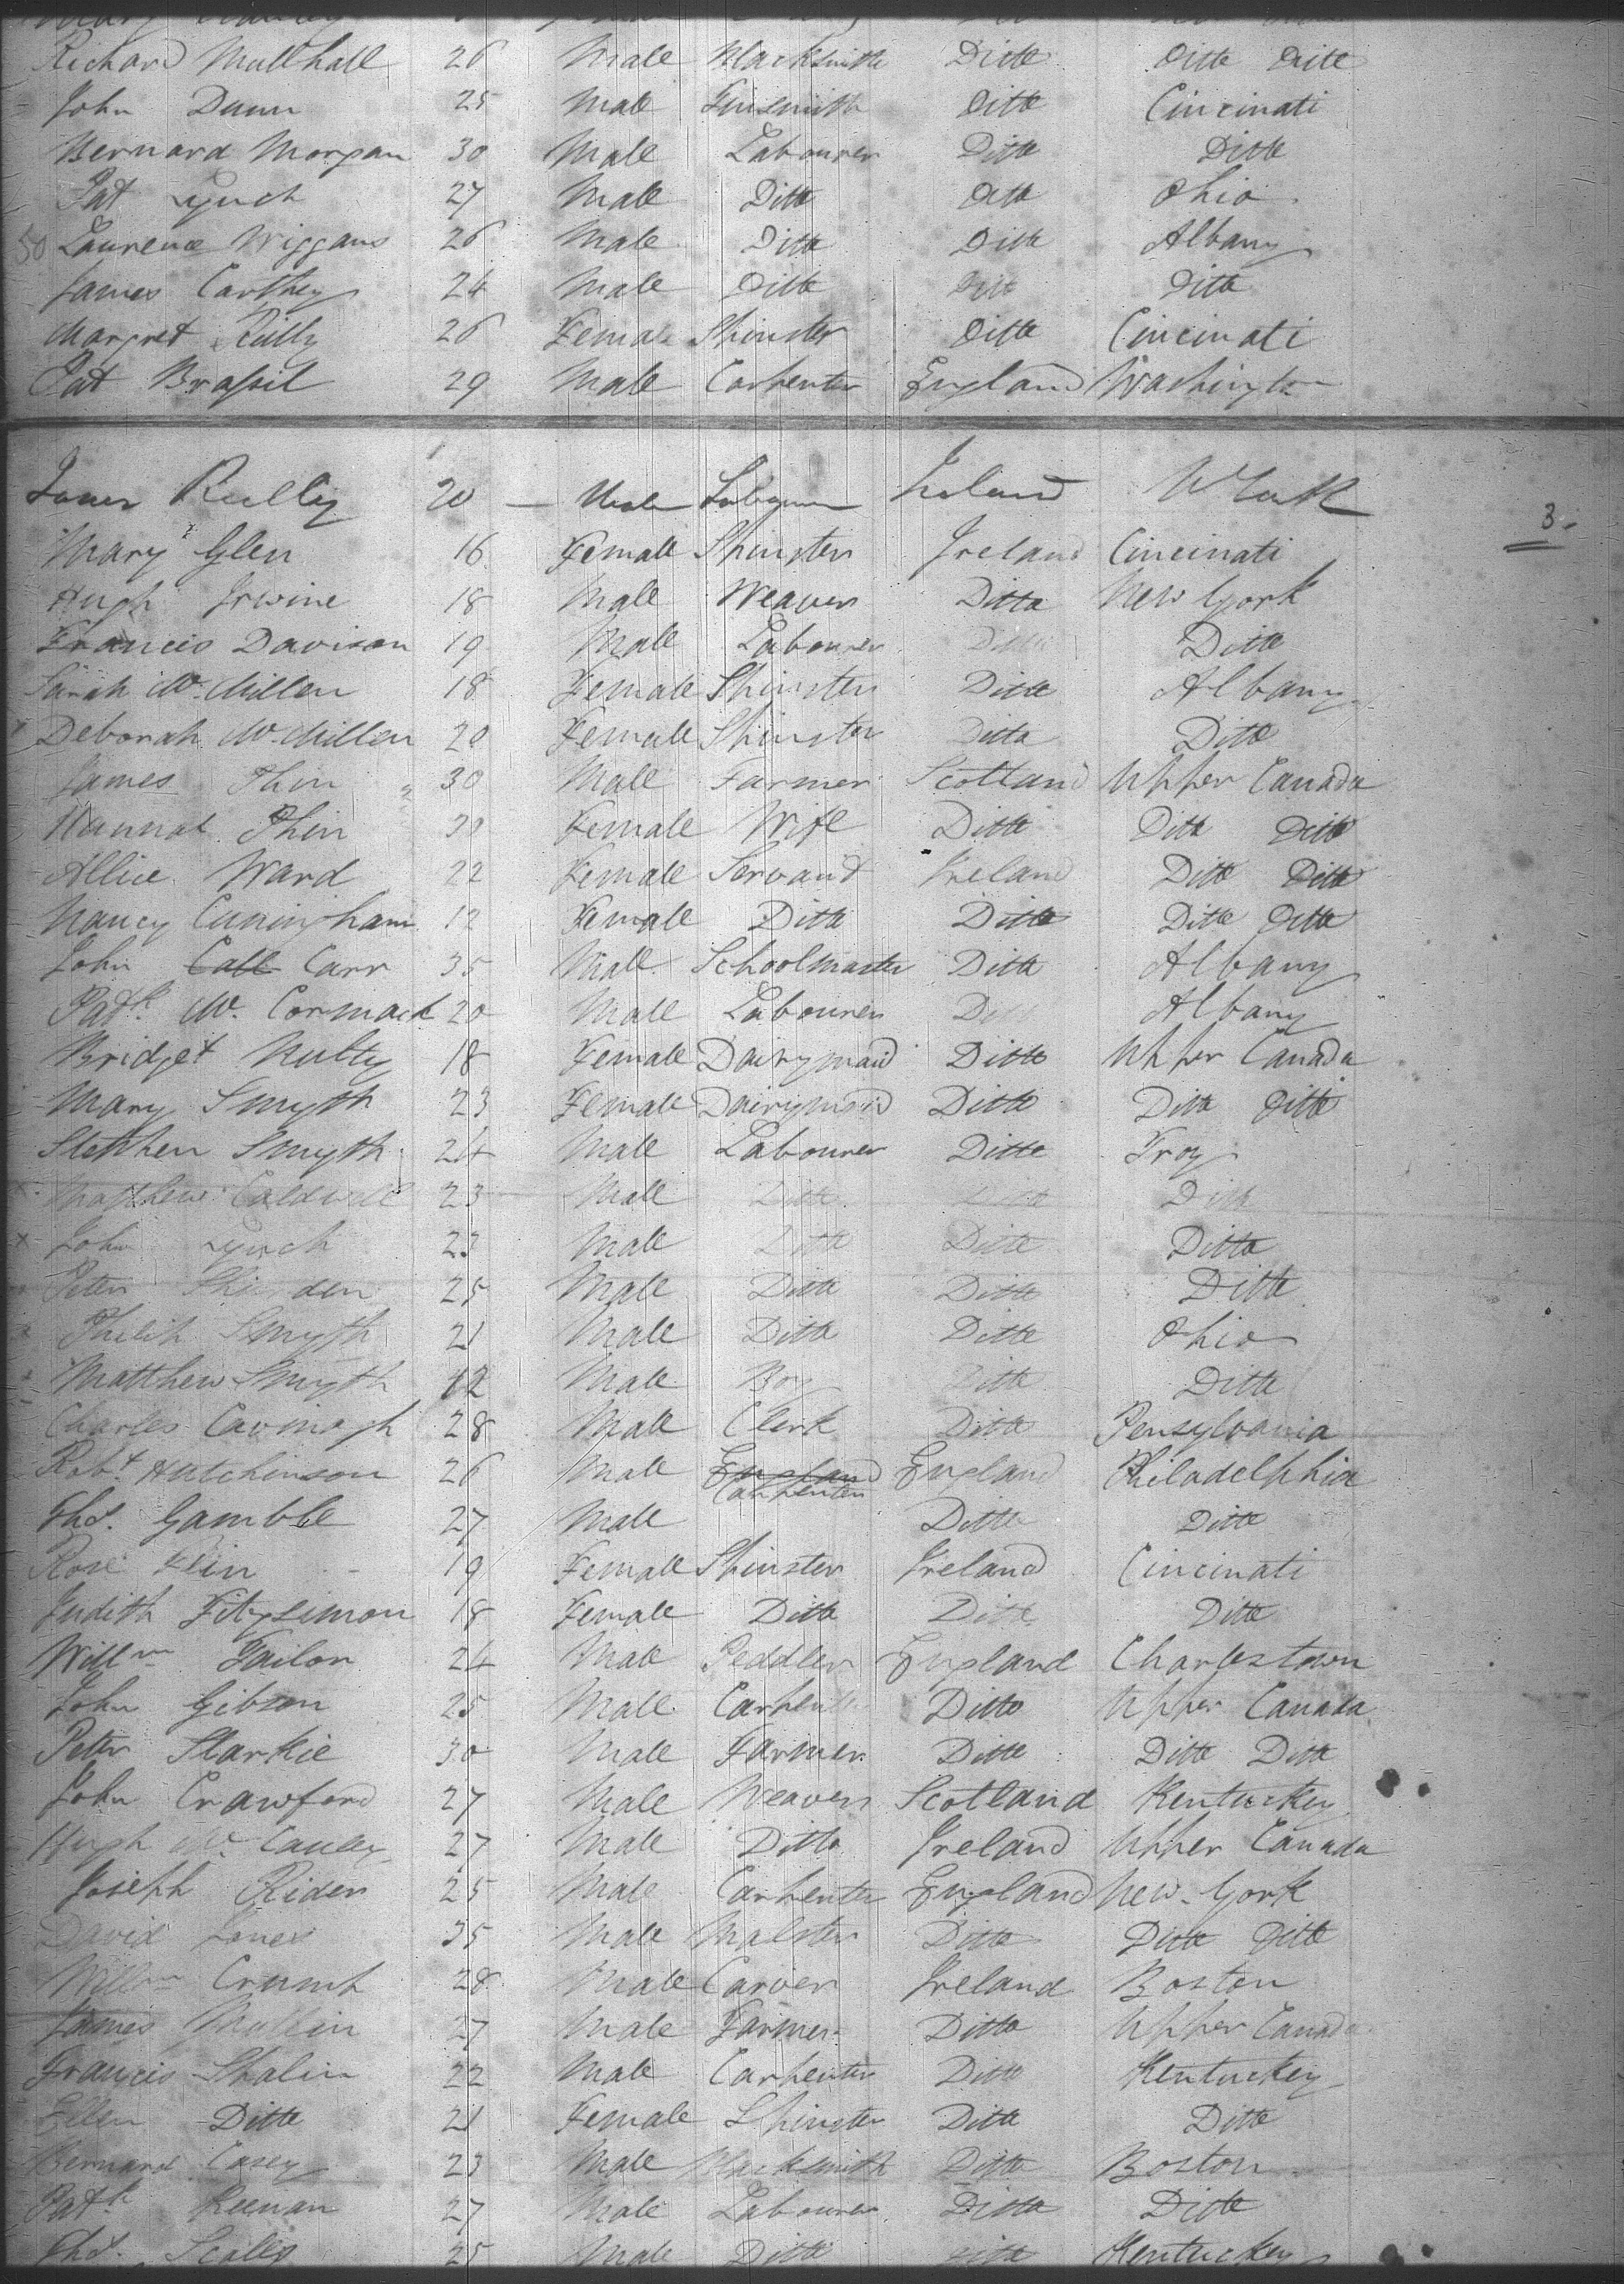 Richard Mullhall 26 Male Blacksmith Ditto Ditto Ditto
John Dunn 25 Male Tinsmith Ditto Cincinati
Bernard Morgan 30 Male Labourer Ditto Ditto
Pat Lynch 27 Male Ditto Ditto Ohio
50 Laurence Wiggans 26 Male Ditto Ditto Albany
James Carthey 24 Male Ditto Ditto Ditto
Margret Rilly 26 Female Spinster Ditto Cincinati
Pat Brassil 29 Male Carpenter England Washington
James Reilly 20 Male Labourer Ireland
3
Mary Glen 16 Female Spinster Ireland Cincinati
Hugh Irwine 18 Male Weaver Ditto New York
Francis Davison 19 Male Labourer Ditto Ditto
Sarah Mc Millen 18 Female Spinster Ditto Albany
Deborah Mc Millen 20 Female Spinster Ditto Ditto
James Thin 30 Male Farmer Scotland Upper Canada
Hannah Thin Female Wife Ditto Ditto Ditto
Allice Ward 22 Female Servant Ireland Ditto Ditto
Nancy Cuningham 12 Female Ditto Ditto Ditto Ditto
John Call Carr 35 Male Schoolmaster Ditto Albany
Patk. Mc Cormack 20 Male Labourer Ditto Albany
Bridget Nulty 18 Female Dairymaid Ditto Upper Canada
Mary Smyth 23 Female Dairymaid Ditto Ditto Ditto
Stephen Smyth 24 Male Labourer Ditto Troy
Matthew Caldwell 23 Male Ditto Ditto Ditto
John Lynch 23 Male Ditto Ditto Ditto
Peter 25 Male Ditto Ditto Ditto
Philip Smyth 21 Male Ditto Ditto Ohio
Matthew Smyth 12 Male Boy Ditto Ditto
Charles Cavinagh 28 Male Clerk Ditto Pensylvania
Robt. Hutchinson 26 Male England Carpenter England Philadelphia
Thos. Gamble 27 Male Ditto Ditto
Rose Flin 19 Female Spinster Ireland Cincinati
Judith Fitzsimon 18 Female Ditto Ditto Ditto
Willm Tailor 24 Male Peddler England Charlestown
John Gibson 25 Male Carpenter Ditto Upper Canada
Peter Starkie 30 Male Farmer Ditto Ditto Ditto
John Crawford 27 Male Weaver Scotland Kentuckey
Hugh Mc Cauley 27 Male Ditto Ireland Upper Canada
Joseph Rider 25 Male Carpenter England New York
David Jones 35 Male Malster Ditto Ditto Ditto
Willm Crump 28 Male Carver Ireland Boston
James Mullin 27 Male Farmer Ditto Upper Canada
Francis Shalin 22 Male Carpenter Ditto Kentuckey
Ellen Ditto 21 Female Spinster Ditto Ditto
Bernard Casey 23 Male Blacksmith Ditto Boston
Patk Keenan 27 Male Labourer Ditto Ditto
Thos. Scales 25 Male Ditto Ditto Kentuckey